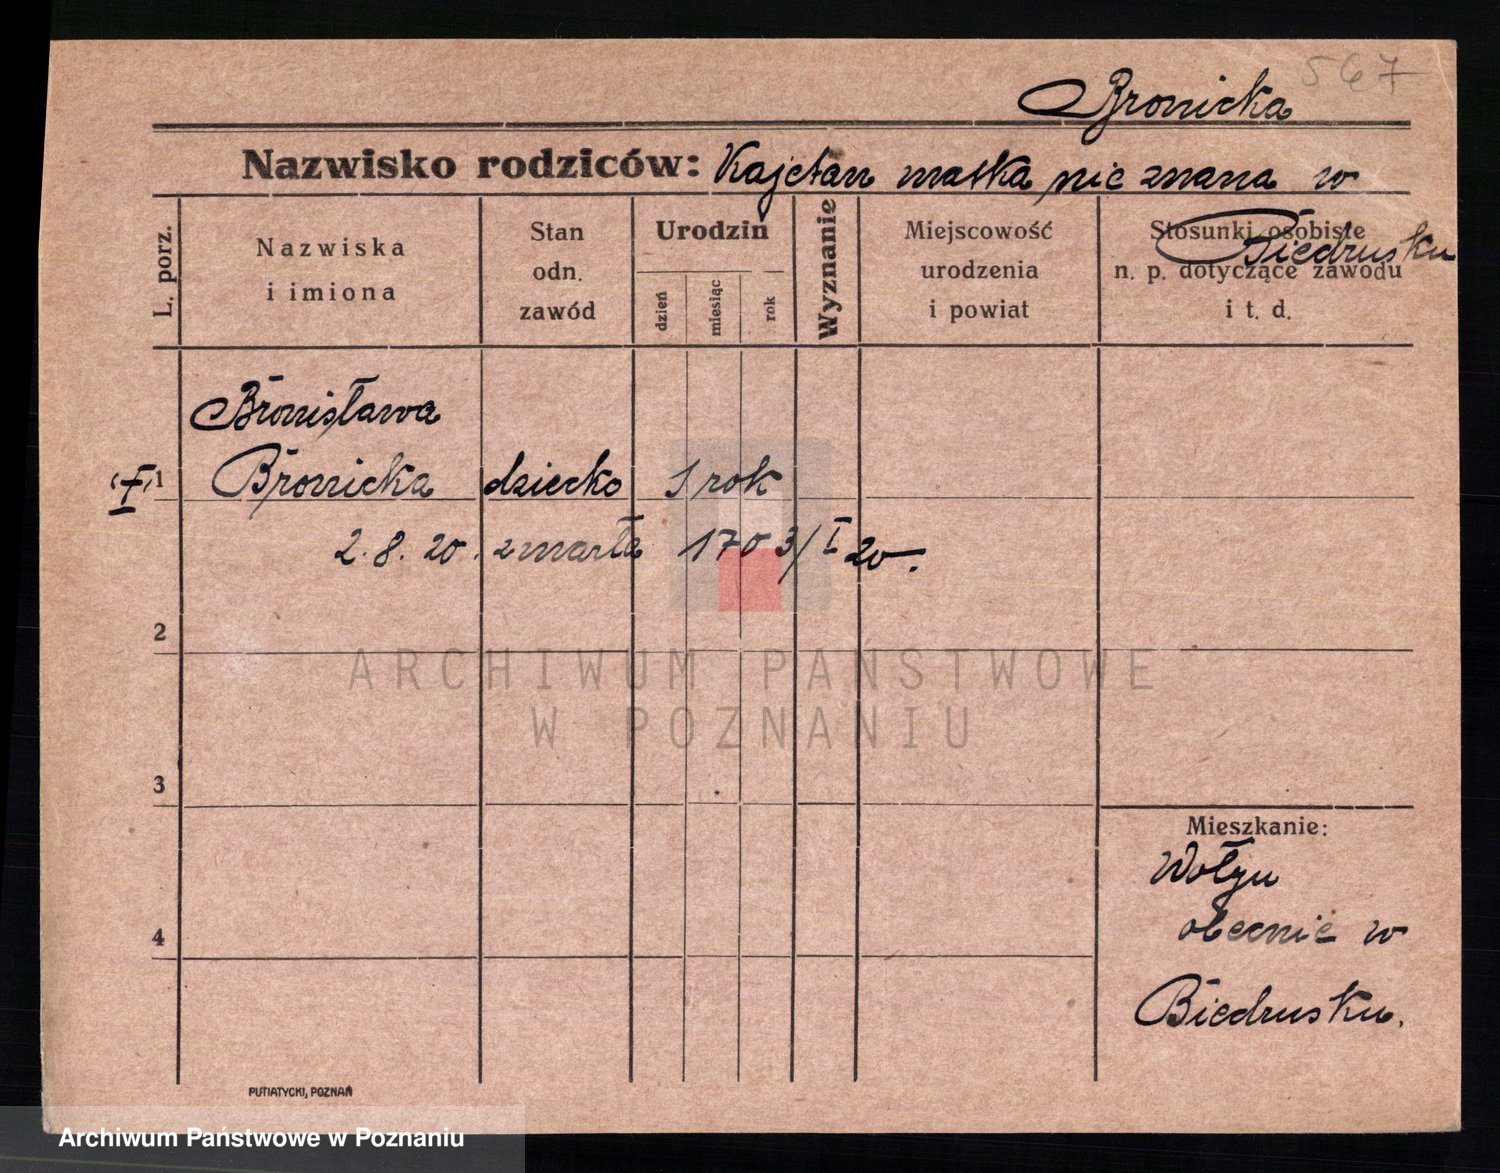 567
Bronicka
Nazwisko rodziców: Kajetan matka nie znana w
Biedrusku
L. porz.
Nazwiska
i imiona
Stan
odn.
zawód
Urodzin
dzień
miesiąc
rok
Wyznanie
Miejscowość
urodzenia
i powiat
Stosunki osobiste
n. p. dotyczące zawodu
i t. d.
Bronisława
1 Bronicka dziecko 1 rok
2. 8. 20. zmarła 1703/I 20.
2
3
4
Mieszkanie:
Wołyn
obecnie w
Biedrusku.
PUTIATYCKI, POZNAŃ
ARCHIWUM PAŃSTWOWE
W POZNANIU
Archiwum Państwowe w Poznaniu